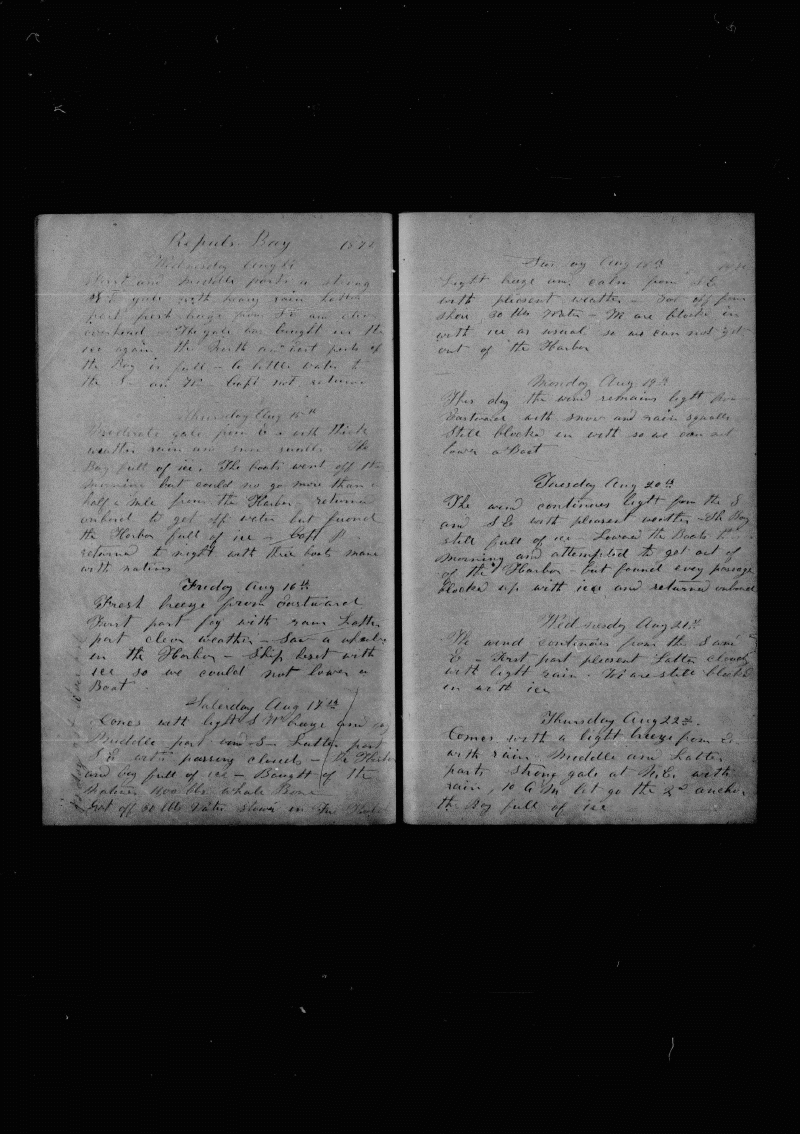 Repuls Bay 1872
Wednesday Aug 14
First and middle parts a strong
S E gale with heavy rain Latter
part fresh breeze from SE and clear
overhead - The gale has brought in the
ice again the North and East parts of
the Bay is full - a little water to
the S and W - Capt not returned
Thursday Aug 15th
Moderate gale from E with thick
weather rain and snow squalls The
Bay full of ice. The boats went off this
morning but could no go more than a
half a mile from the Harbor, returned
onbord to get off water but found
the Harbor full of ice - Capt P
returned to night with three boats maned
with natives
Friday Aug 16th
Fresh breeze from Eastward
First part fog with rain Latter
part clear weather - Saw a whale
in the Harbor - Ship beset with
ice so we could not lower a
Boat
Saturday Aug 17th
Comes with light S W breeze and
Middle part wind S - Latter part
S E with passing clouds - The Harbor
and bay full of ice - Bought of the
Natives 1100 lbs whale Bone
Got off 30 bbls water in the
Sunday Aug 18th
Light breeze and calm from S E
with plesent weather - Got off from
shore 30 bbls Water - We are blocked in
with ice as usual so we can not get
out of the Harbor
Monday Aug 19th
This day the wind remains light from
Eastward with snow and rain squalls
Still blocked in with so we can not
lower a Boat
Tuesday Aug 20th
The wind continues light from the S
and S E with plesent weather - The Bay
still full of ice - Lowerd the Boats this
morning and attempted to get out of
of the Harbor - but found evey passage
blocked up with ice and returned onbord
Wednesday Aug 21st
The wind continues from the S and
E - First part plesent Latter cloudy
with light rain. We are still blocked
in with ice
Thursday Aug 22d.
Comes with a light breeze from E
with rain. Middle and Latter
parts strong gale at N.E. with
rain, 10 A M let go the 2d anchor
the Bay full of ice